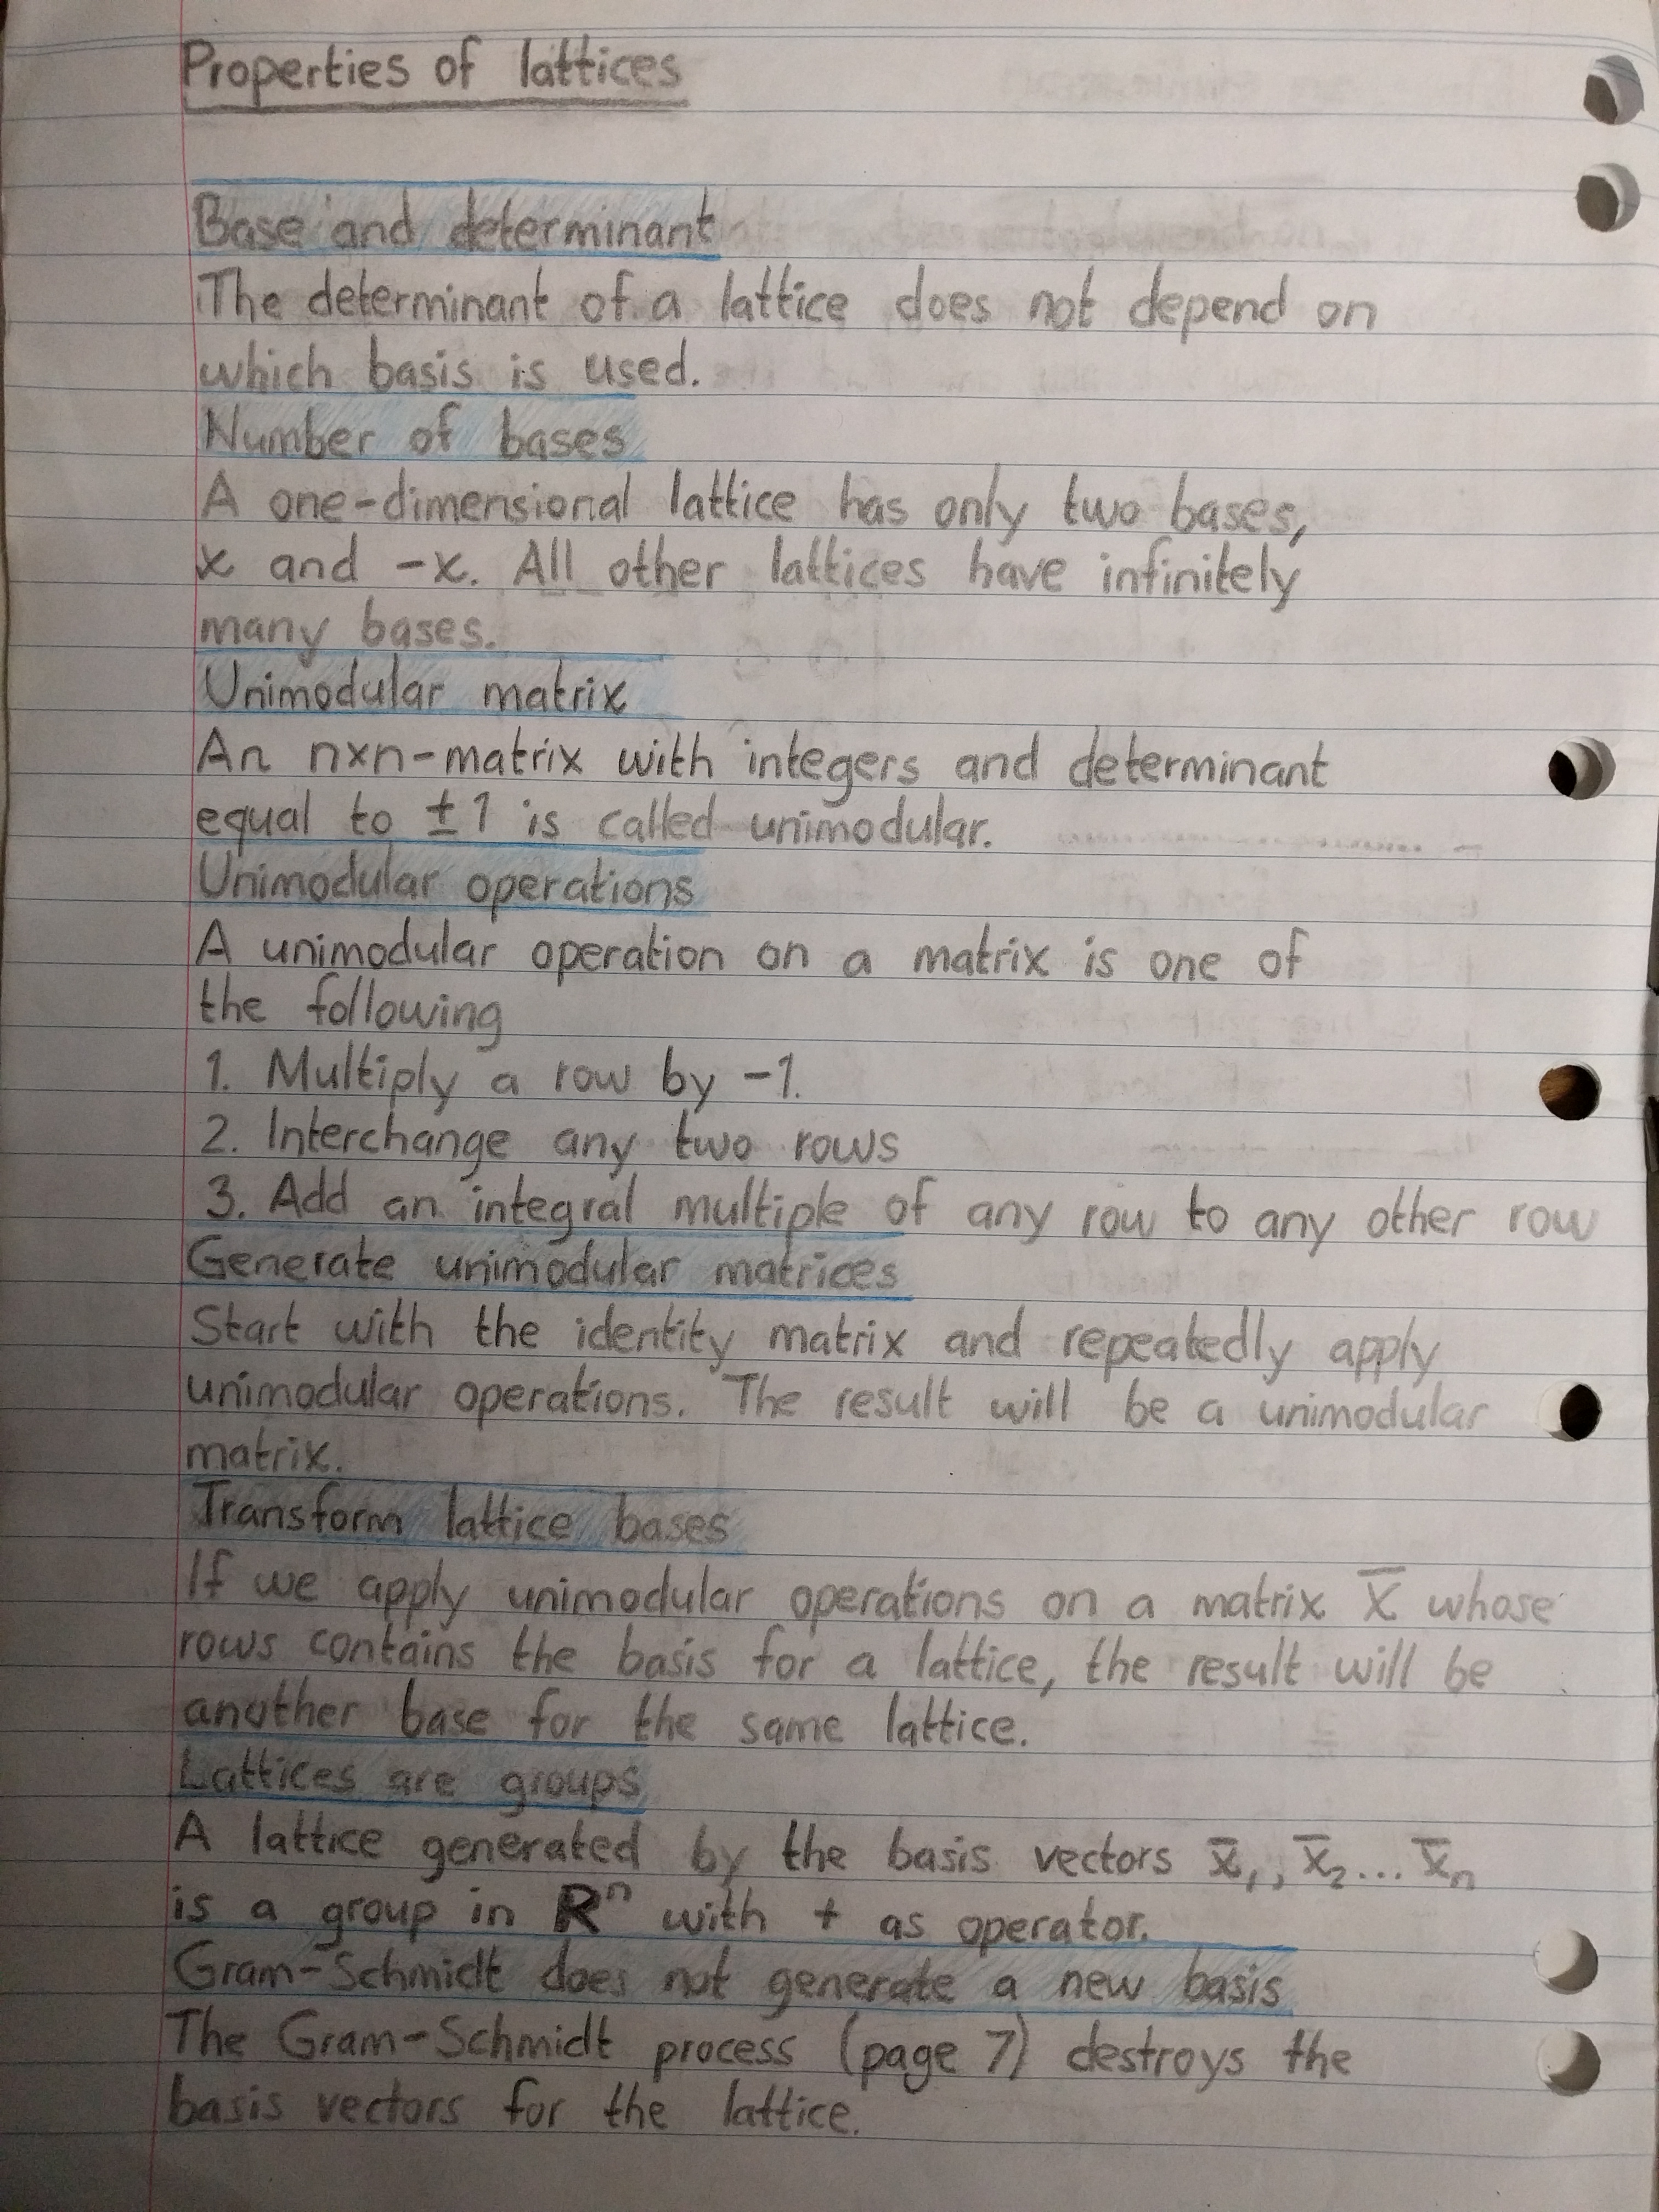 Properties of lattices
Base and determinant
The determinant of a lattice does not depend on
which basis is used.
Number of bases
A one-dimensional lattice has only two bases,
x and -x. All other lattices have infinitely
many bases.
Unimodular matrix
An n×n-matrix with integers and determinant
equal to ±1 is called unimodular.
Unimodular operations
A unimodular operation on a matrix is one of
the following
1. Multiply a row by -1.
2. Interchange any two rows
3. Add an integral multiple of any row to any other row
Generate unimodular matrices
Start with the identity matrix and repeatedly apply
unimodular operations. The result will be a unimodular
matrix.
Transform lattice bases
If we apply unimodular operations on a matrix X̅ whose
rows contains the basis for a lattice, the result will be
another base for the same lattice.
Lattices are groups
A lattice generated by the basis vectors x̅₁, x̅₂... x̅ₙ
is a group in Rⁿ with + as operator.
Gram-Schmidt does not generate a new basis
The Gram-Schmidt process (page 7) destroys the
basis vectors for the lattice.